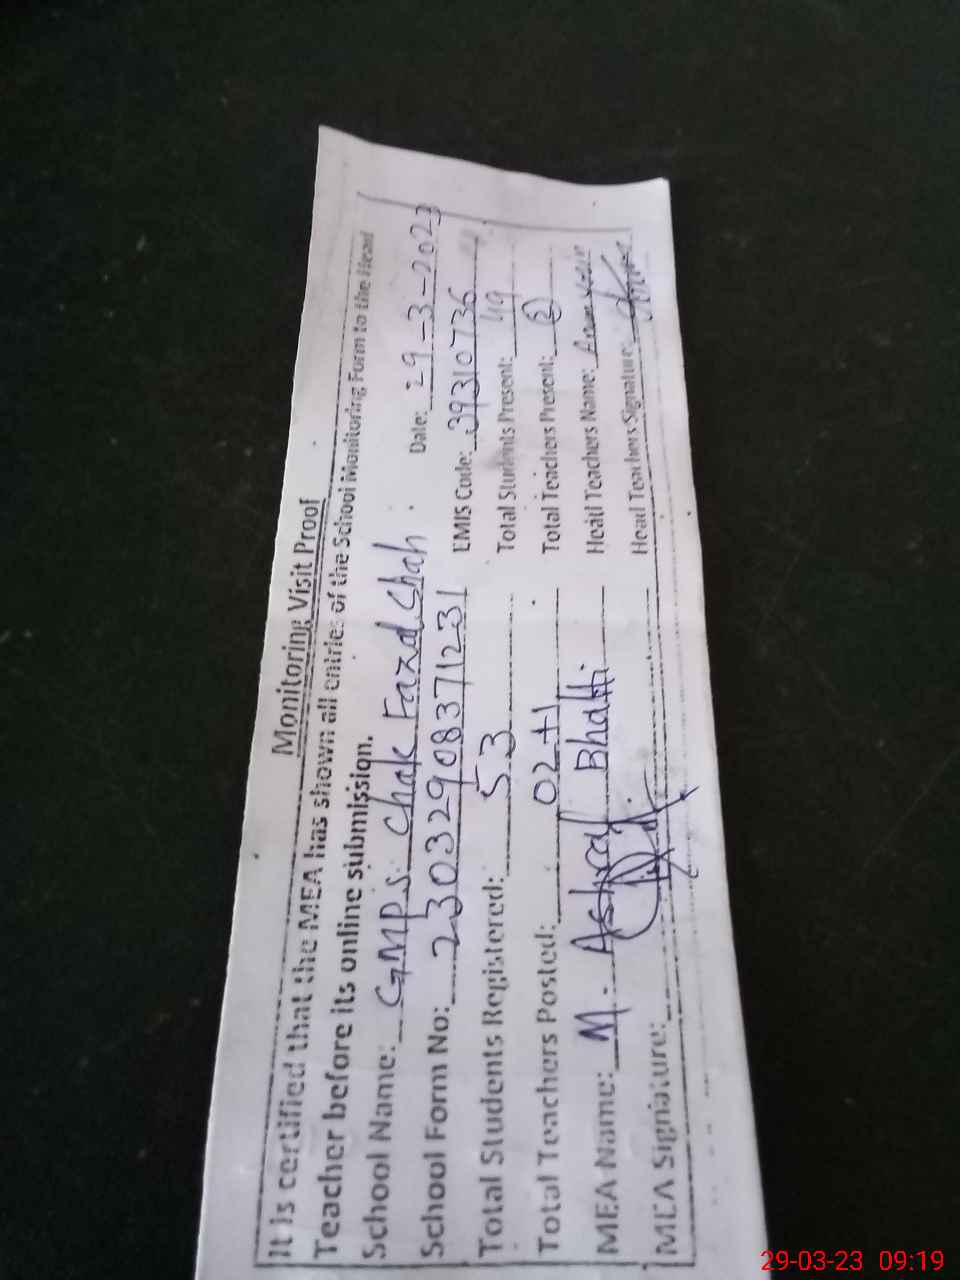 Monitoring Visit Proof
It is certified that the MEA has shown all entries of the School Monitoring Form to the Head
Teacher before its online submission.
School Name: GMPS. Chak Fazal Shah. Date: 29-3-2023
School Form No: 23032908371231 EMIS Code: 39310736
Total Students Registered: 53 Total Students Present: 49
Total Teachers Posted: 02+1 Total Teachers Present: 2
MEA Name: M. Ashraf Bhatti Head Teachers Name:
MEA Signature: Head Teachers Signature:
29-03-23 09:19